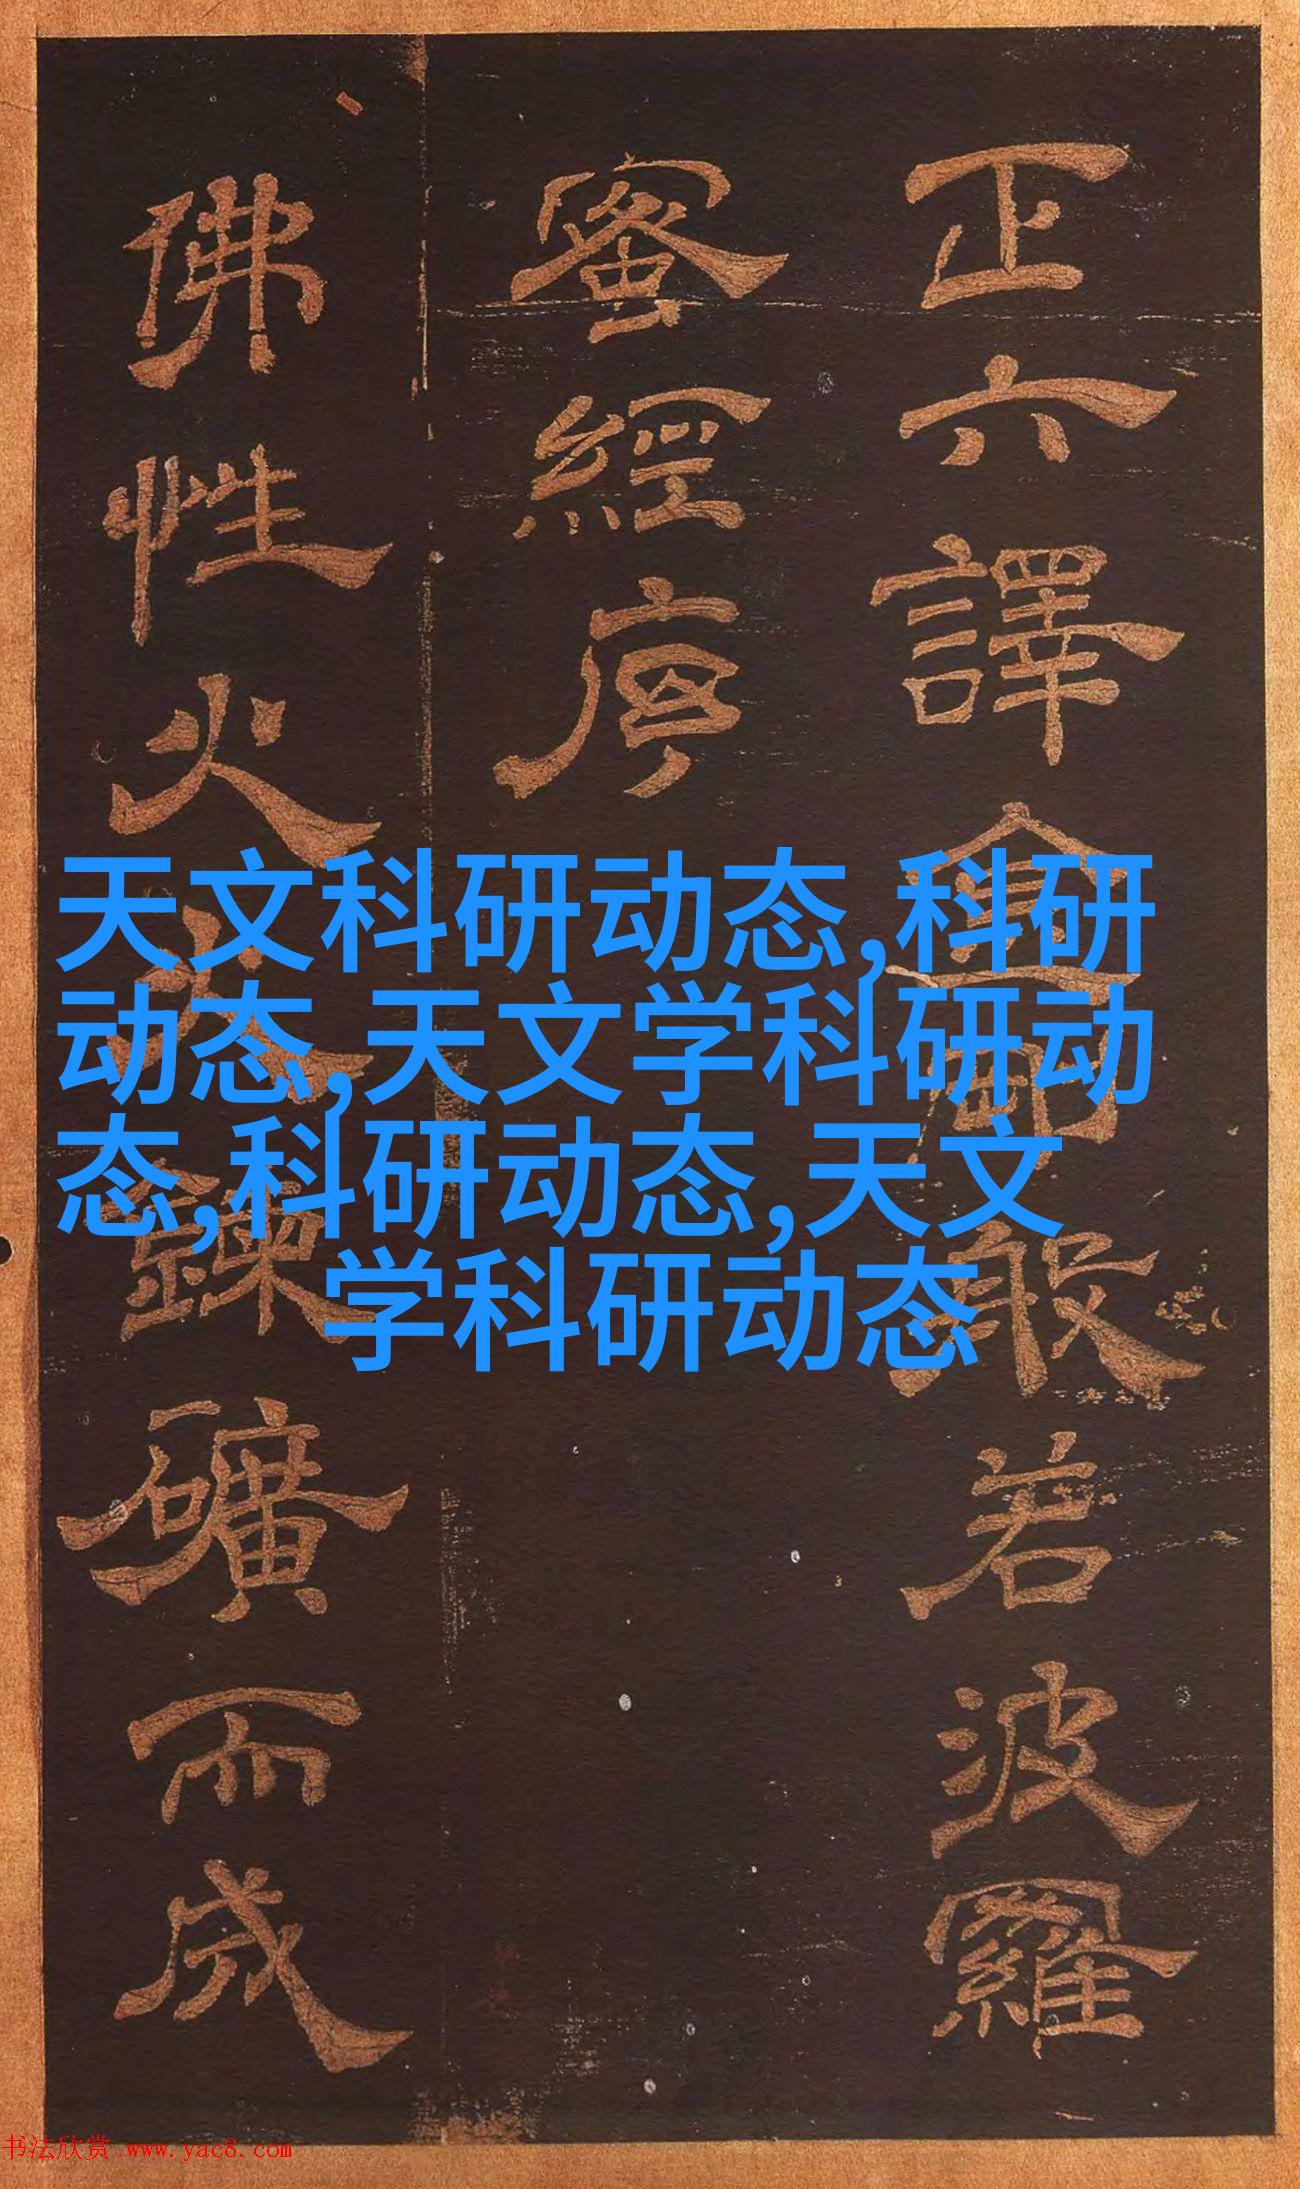 正六譯金剛般若波羅
蜜經序
佛性火鍊礦而成
天文科研动态,科研
动态,天文学科研动
态,科研动态,天文
学科研动态
书法欣赏 www.yac8.com